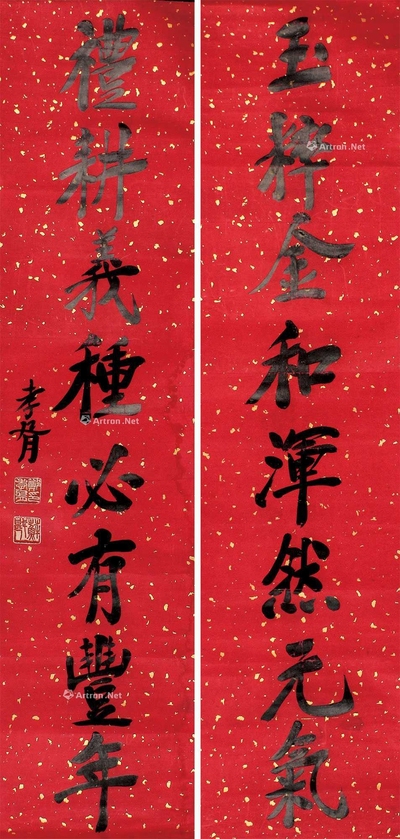 玉粹金和渾然元氣
禮耕義種必有豐年
孝胥
Artron.Net
Artron.Net
Artron.Net